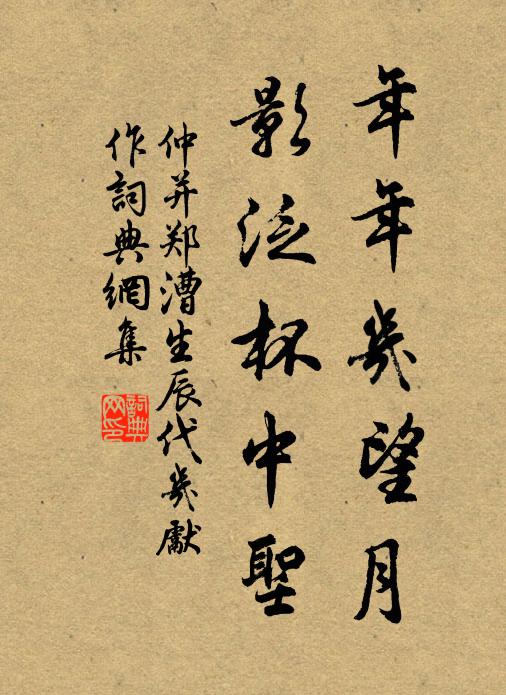 年年幾望月
影泛杯中聖
仲并郑漕生辰代幾獻
作詞典網集
詞典网印